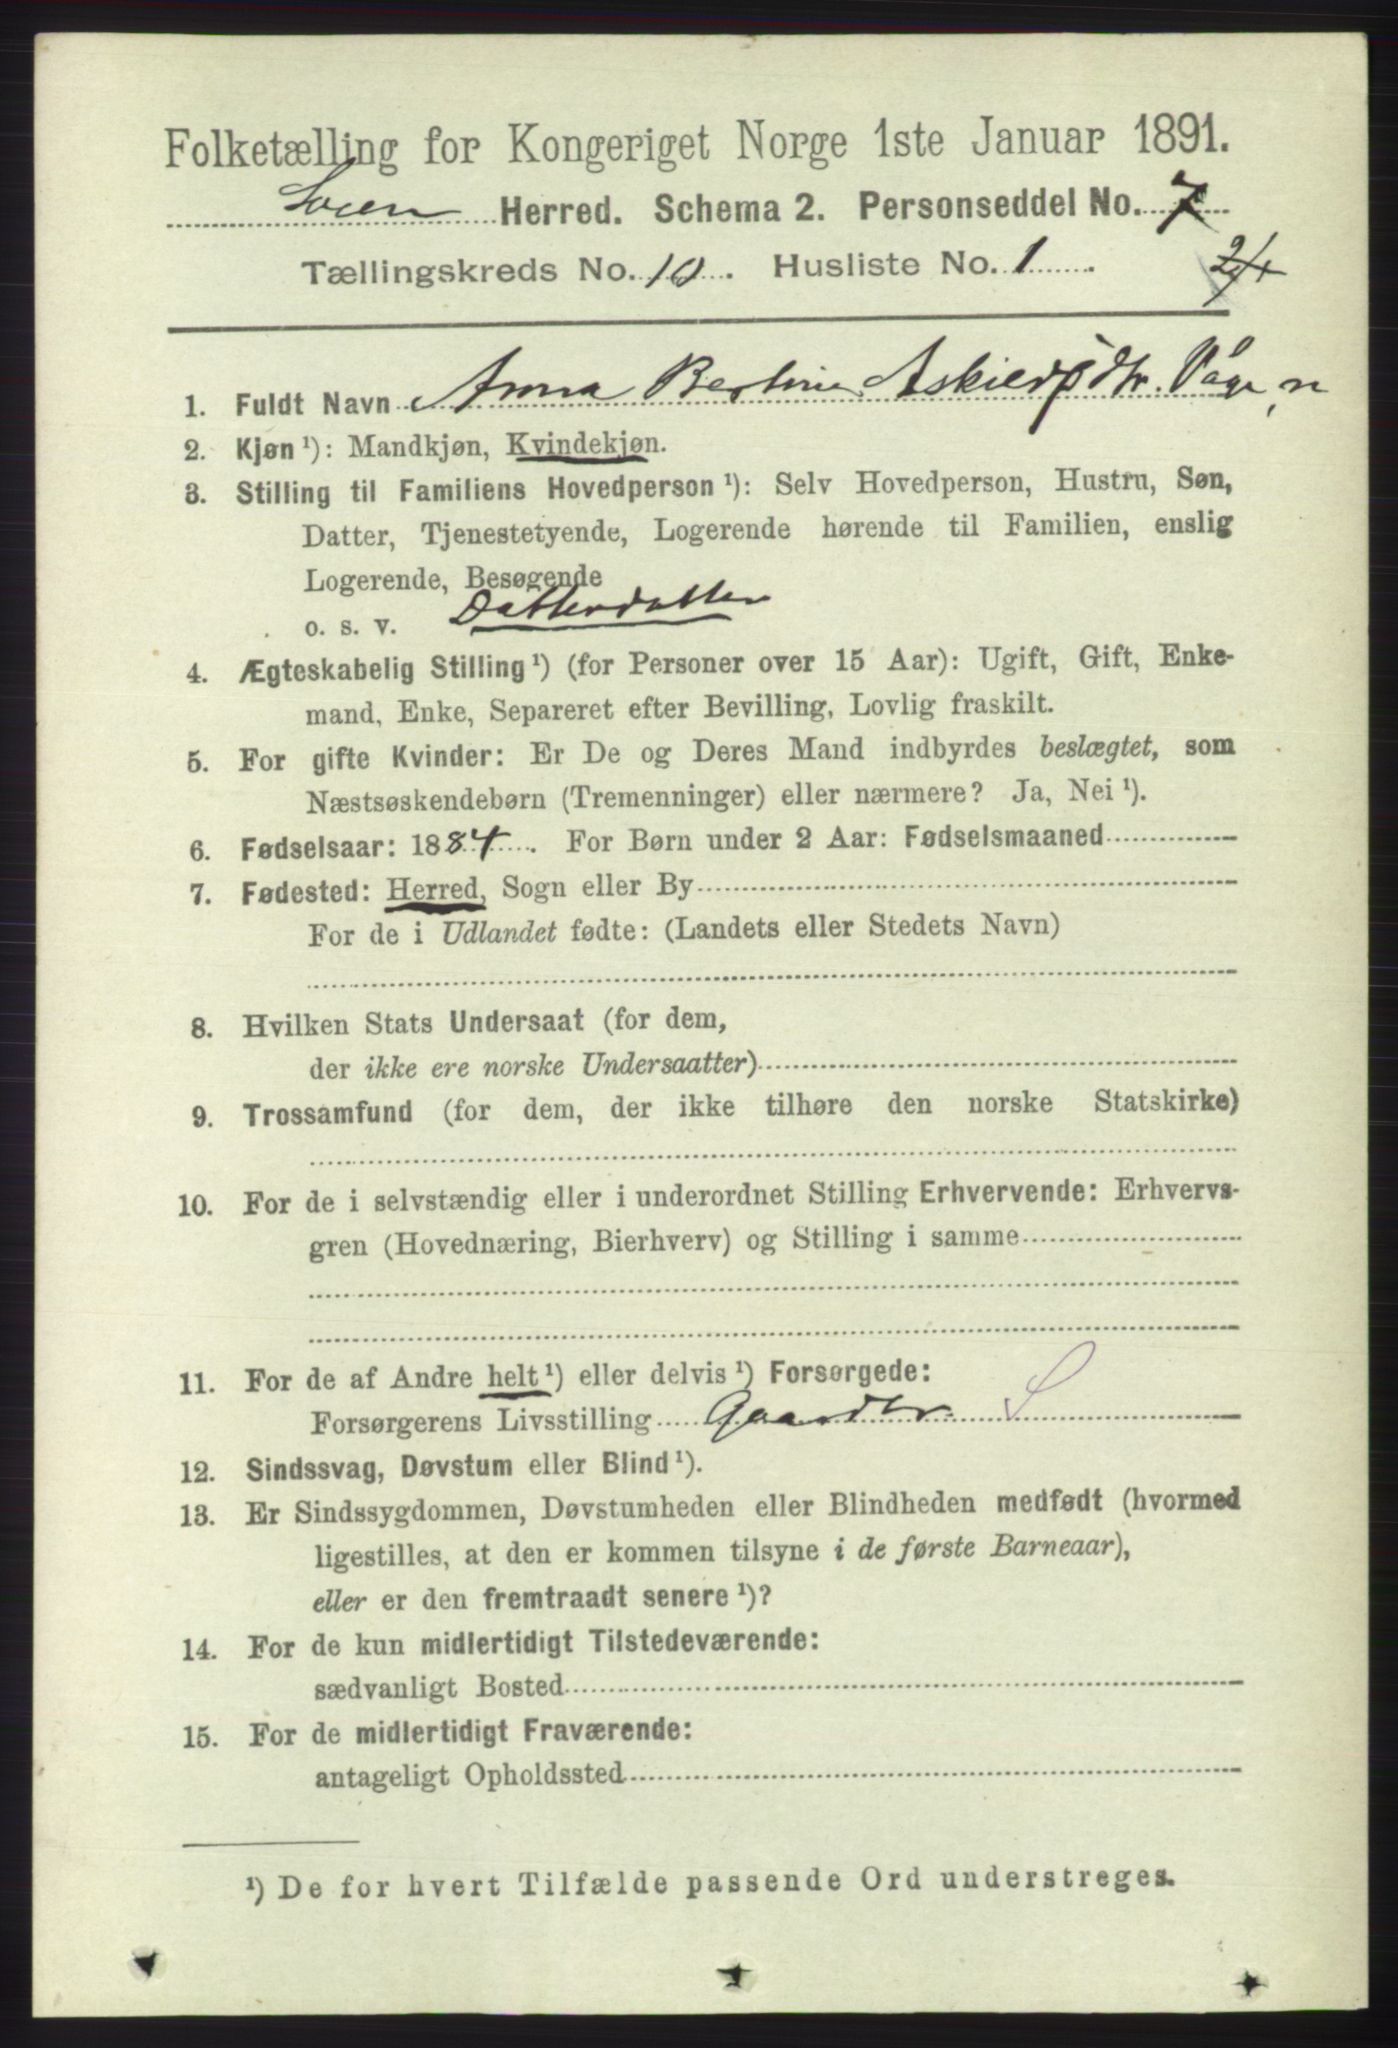 Folketælling for Kongeriget Norge 1ste Januar 1891.
Sveen Herred. Schema 2. Personseddel No. 7
Tællingskreds No. 10. Husliste No. 1.
1. Fuldt Navn Anna Berline Askildsdtr. Vågen
2. Kjøn ¹): Mandkjøn, Kvindekjøn.
3. Stilling til Familiens Hovedperson ¹): Selv Hovedperson, Hustru, Søn,
Datter, Tjenestetyende, Logerende hørende til Familien, enslig
Logerende, Besøgende
o. s. v. Datterdatter
4. Ægteskabelig Stilling ¹) (for Personer over 15 Aar): Ugift, Gift, Enke-
mand, Enke, Separeret efter Bevilling, Lovlig fraskilt.
5. For gifte Kvinder: Er De og Deres Mand indbyrdes beslægtet, som
Næstsøskendebørn (Tremenninger) eller nærmere? Ja, Nei ¹).
6. Fødselsaar: 1884. For Børn under 2 Aar: Fødselsmaaned
7. Fødested: Herred, Sogn eller By
For de i Udlandet fødte: (Landets eller Stedets Navn)
8. Hvilken Stats Undersaat (for dem,
der ikke ere norske Undersaatter)
9. Trossamfund (for dem, der ikke tilhøre den norske Statskirke)
10. For de i selvstændig eller i underordnet Stilling Erhvervende: Erhvervs-
gren (Hovednæring, Bierhverv) og Stilling i samme
11. For de af Andre helt ¹) eller delvis ¹) Forsørgede:
Forsørgerens Livsstilling Gaardbr. S
12. Sindssvag, Døvstum eller Blind ¹).
13. Er Sindssygdommen, Døvstumheden eller Blindheden medfødt (hvormed
ligestilles, at den er kommen tilsyne i de første Barneaar),
eller er den fremtraadt senere ¹)?
14. For de kun midlertidigt Tilstedeværende:
sædvanligt Bosted
15. For de midlertidigt Fraværende:
antageligt Opholdssted
¹) De for hvert Tilfælde passende Ord understreges.